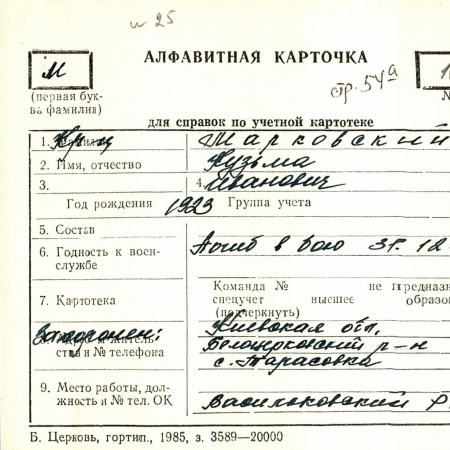 и 25
АЛФАВИТНАЯ КАРТОЧКА
М
стр. 54а
(первая бук-
ва фамилии)
для справок по учетной картотеке
1. Фамилия Жарковский
2. Имя, отчество Кузьма
3. 4. Иванович
Год рождения 1923 Группа учета
5. Состав
6. Годность к воен-
службе
Погиб в бою 31. 12
Команда № не предназн
7. Картотека спецучет высшее образо
(подчеркнуть)
Захоронен: Киевская обл,
стива и № телефона Белоцерковский р-н
с. Тарасовка
9. Место работы, дол-
жность и № тел. ОК Васильковский р.
Б. Церковь, гортип., 1985, з. 3589—20000